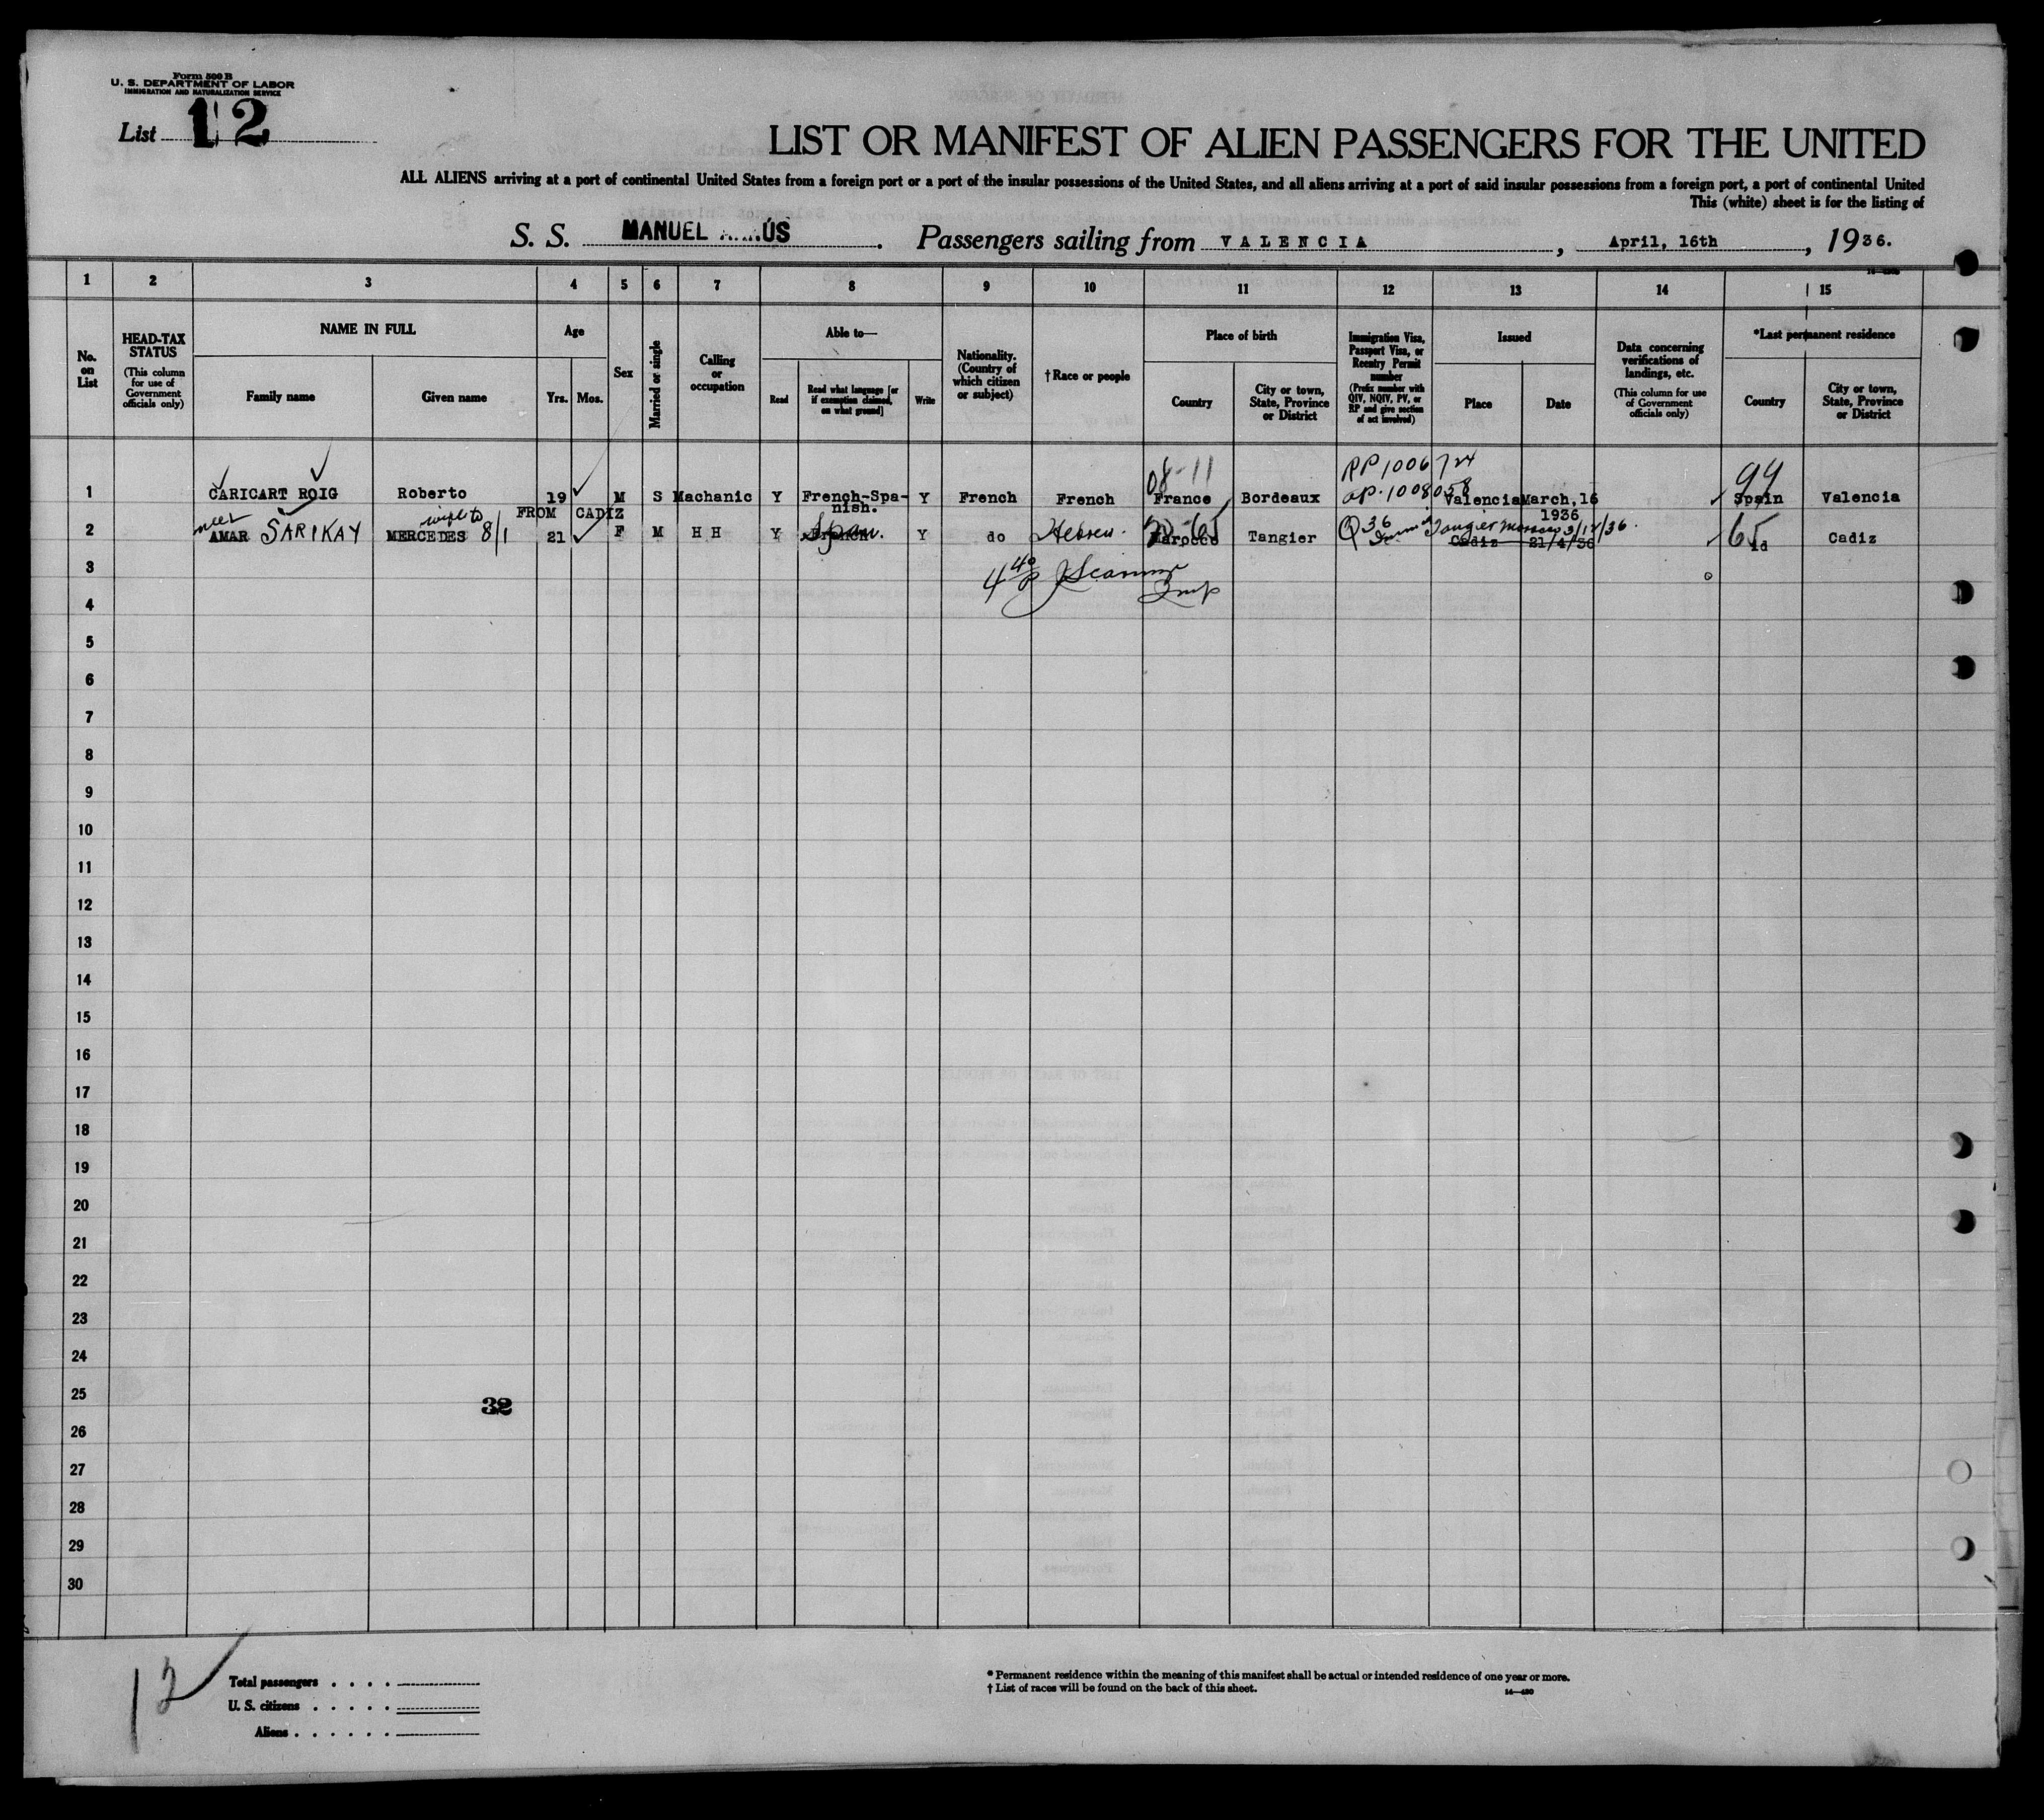 Form 500 B
U. S. DEPARTMENT OF LABOR
IMMIGRATION AND NATURALIZATION SERVICE
List 12
LIST OR MANIFEST OF ALIEN PASSENGERS FOR THE UNITED
ALL ALIENS arriving at a port of continental United States from a foreign port or a port of the insular possessions of the United States, and all aliens arriving at a port of said insular possessions from a foreign port, a port of continental United
This (white) sheet is for the listing of
S. S. MANUEL Passengers sailing from VALENCIA, April, 16th, 1936.
1 2 3 4 5 6 7 8 9 10 11 12 13 14 15
No. on List
HEAD-TAX STATUS (This column for use of Government officials only)
NAME IN FULL
Family name
Given name
Age
Yrs. Mos.
Sex
Married or single
Calling or occupation
Able to—
Read
Read what language [or if exemption claimed, on what ground]
Write
Nationality. (Country of which citizen or subject)
† Race or people
Place of birth
Country
City or town, State, Province or District
Immigration Visa, Passport Visa, or Reentry Permit number (Prefix number with QIV, NQIV, PV, or RP and give section of act involved)
Issued
Place
Date
Data concerning verifications of landings, etc. (This column for use of Government officials only)
*Last permanent residence
Country
City or town, State, Province or District
08-11 RP 1006724 99
1 CARICART ROIG Roberto 19 M S Machanic Y French-Spa- Y French French France Bordeaux OP.1008058 Valencia March, 16 Spain Valencia
nish. 1936
FROM CADIZ
wife to
2 AMAR SARIKAY MERCEDES 8/1 21 F M H H Y French Span. Y do Hebrew. Marocco Tangier Q 36 Tangier Morocco 3/12/36. Cadiz 21/4/36 65 id Cadiz
3
4
5
6
7
8
9
10
11
12
13
14
15
16
17
18
19
20
21
22
23
24
25
32
26
27
28
29
30
12
Total passengers . . . .
U. S. citizens . . . . .
Aliens . . . . . .
* Permanent residence within the meaning of this manifest shall be actual or intended residence of one year or more.
† List of races will be found on the back of this sheet.
14—430